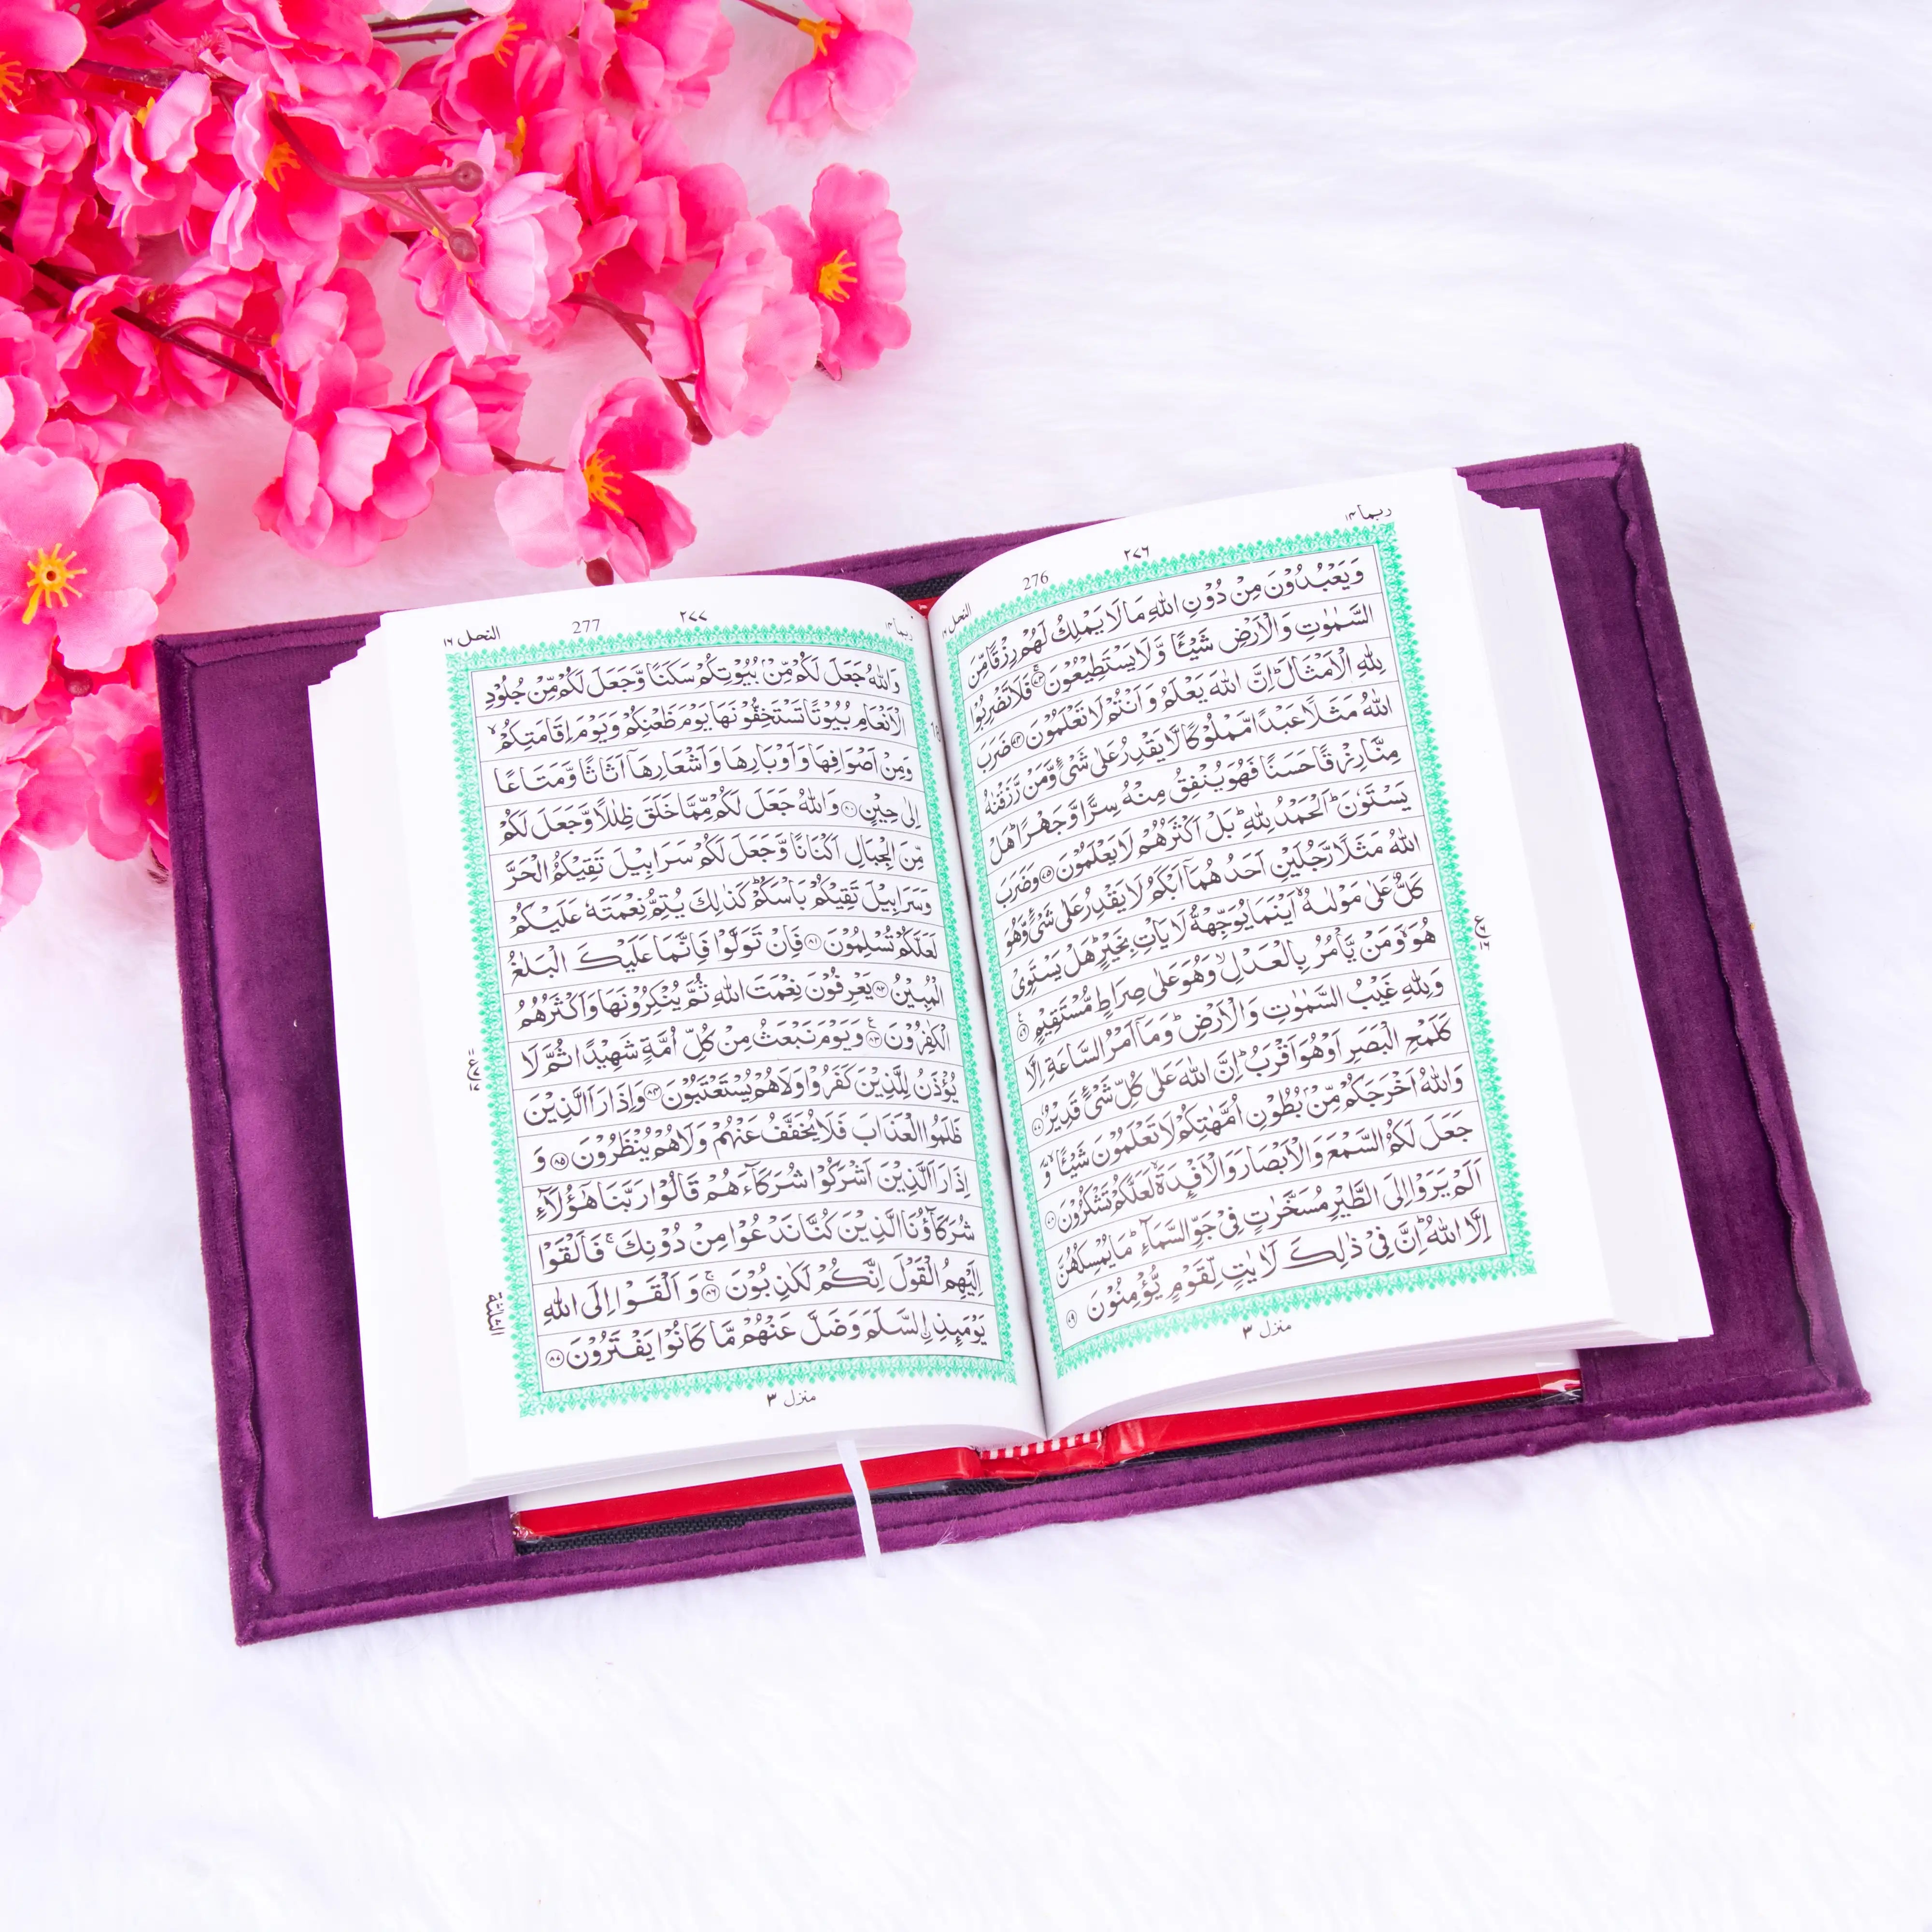 ربما ١٤
٢٧٦
276
النحل ١٦
وَيَعْبُدُوْنَ مِنْ دُوْنِ اللّٰهِ مَا لَا يَمْلِكُ لَهُمْ رِزْقًا مِّنَ
السَّمٰوٰتِ وَالْاَرْضِ شَيْـًٔا وَّلَا يَسْتَطِيْعُوْنَ ۚ‏﴿۷۳﴾ فَلَا تَضْرِبُوْا
لِلّٰهِ الْاَمْثَالَ ؕ اِنَّ اللّٰهَ يَعْلَمُ وَاَنْتُمْ لَا تَعْلَمُوْنَ ﴿۷۴﴾ ضَرَبَ
اللّٰهُ مَثَلًا عَبْدًا مَّمْلُوْكًا لَّا يَقْدِرُ عَلٰى شَىْءٍ وَّمَنْ رَّزَقْنٰهُ
مِنَّا رِزْقًا حَسَنًا فَهُوَ يُنْفِقُ مِنْهُ سِرًّا وَّجَهْرًا ؕ هَلْ
يَسْتَوٗنَ ؕ اَلْحَمْدُ لِلّٰهِ ؕ بَلْ اَكْثَرُهُمْ لَا يَعْلَمُوْنَ ﴿۷۵﴾ وَضَرَبَ
اللّٰهُ مَثَلًا رَّجُلَيْنِ اَحَدُهُمَاۤ اَبْكَمُ لَا يَقْدِرُ عَلٰى شَىْءٍ وَّهُوَ
كَلٌّ عَلٰى مَوْلٰىهُ ۙ اَيْنَمَا يُوَجِّهْهُّ لَا يَاْتِ بِخَيْرٍ ؕ هَلْ يَسْتَوِىْ
هُوَ ۙ وَمَنْ يَّاْمُرُ بِالْعَدْلِ ۙ وَهُوَ عَلٰى صِرَاطٍ مُّسْتَقِيْمٍ ﴿۷۶﴾
وَلِلّٰهِ غَيْبُ السَّمٰوٰتِ وَالْاَرْضِ ؕ وَمَاۤ اَمْرُ السَّاعَةِ اِلَّا
كَلَمْحِ الْبَصَرِ اَوْ هُوَ اَقْرَبُ ؕ اِنَّ اللّٰهَ عَلٰى كُلِّ شَىْءٍ قَدِيْرٌ ﴿۷۷﴾
وَاللّٰهُ اَخْرَجَكُمْ مِّنْۢ بُطُوْنِ اُمَّهٰتِكُمْ لَا تَعْلَمُوْنَ شَيْـًٔا ۙ وَّ
جَعَلَ لَكُمُ السَّمْعَ وَالْاَبْصَارَ وَالْاَفْـِٕدَةَ ۙ لَعَلَّكُمْ تَشْكُرُوْنَ ﴿۷۸﴾
اَلَمْ يَرَوْا اِلَى الطَّيْرِ مُسَخَّرٰتٍ فِىْ جَوِّ السَّمَآءِ ؕ مَا يُمْسِكُهُنَّ
اِلَّا اللّٰهُ ؕ اِنَّ فِىْ ذٰلِكَ لَاٰيٰتٍ لِّقَوْمٍ يُّؤْمِنُوْنَ ﴿۷۹﴾
منزل ٣
ربما ١٤
٢٧٧
277
النحل ١٦
وَاللّٰهُ جَعَلَ لَكُمْ مِّنْۢ بُيُوْتِكُمْ سَكَنًا وَّجَعَلَ لَكُمْ مِّنْ جُلُوْدِ
الْاَنْعَامِ بُيُوْتًا تَسْتَخِفُّوْنَهَا يَوْمَ ظَعْنِكُمْ وَيَوْمَ اِقَامَتِكُمْ ۙ
وَمِنْ اَصْوَافِهَا وَاَوْبَارِهَا وَاَشْعَارِهَاۤ اَثَاثًا وَّمَتَاعًا
اِلٰى حِيْنٍ ﴿۸۰﴾ وَاللّٰهُ جَعَلَ لَكُمْ مِّمَّا خَلَقَ ظِلٰلًا وَّجَعَلَ لَكُمْ
مِّنَ الْجِبَالِ اَكْنَانًا وَّجَعَلَ لَكُمْ سَرَابِيْلَ تَقِيْكُمُ الْحَرَّ
وَسَرَابِيْلَ تَقِيْكُمْ بَاْسَكُمْ ؕ كَذٰلِكَ يُتِمُّ نِعْمَتَهٗ عَلَيْكُمْ
لَعَلَّكُمْ تُسْلِمُوْنَ ﴿۸۱﴾ فَاِنْ تَوَلَّوْا فَاِنَّمَا عَلَيْكَ الْبَلٰغُ
الْمُبِيْنُ ﴿۸۲﴾ يَعْرِفُوْنَ نِعْمَتَ اللّٰهِ ثُمَّ يُنْكِرُوْنَهَا وَاَكْثَرُهُمُ
الْكٰفِرُوْنَ ﴿۸۳﴾ وَيَوْمَ نَبْعَثُ مِنْ كُلِّ اُمَّةٍ شَهِيْدًا ثُمَّ لَا
يُؤْذَنُ لِلَّذِيْنَ كَفَرُوْا وَلَا هُمْ يُسْتَعْتَبُوْنَ ﴿۸۴﴾ وَاِذَا رَاَ الَّذِيْنَ
ظَلَمُوا الْعَذَابَ فَلَا يُخَفَّفُ عَنْهُمْ وَلَا هُمْ يُنْظَرُوْنَ ﴿۸۵﴾ وَ
اِذَا رَاَ الَّذِيْنَ اَشْرَكُوْا شُرَكَآءَهُمْ قَالُوْا رَبَّنَا هٰۤؤُلَآءِ
شُرَكَآؤُنَا الَّذِيْنَ كُنَّا نَدْعُوْا مِنْ دُوْنِكَ ۚ فَاَلْقَوْا
اِلَيْهِمُ الْقَوْلَ اِنَّكُمْ لَكٰذِبُوْنَ ۚ﴿۸۶﴾ وَاَلْقَوْا اِلَى اللّٰهِ
يَوْمَئِذِ اۨلسَّلَمَ وَضَلَّ عَنْهُمْ مَّا كَانُوْا يَفْتَرُوْنَ ﴿۸۷﴾
الثلثة
منزل ٣